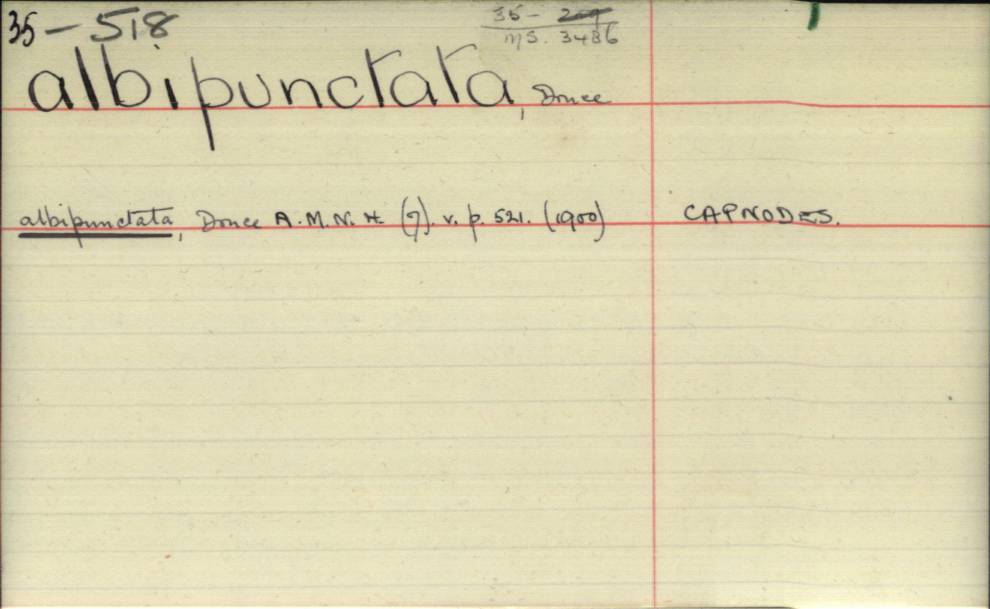 35 – 518
35 –
MS. 3486
albipunctata, Druce
albipunctata, Druce A.M.N.H. (7). v. p. 521. (1900) CAPNODES.